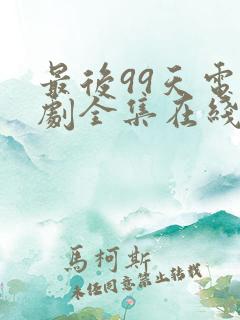 最後99天電
劇全集在綫
馬柯斯
未任同意禁止轉載